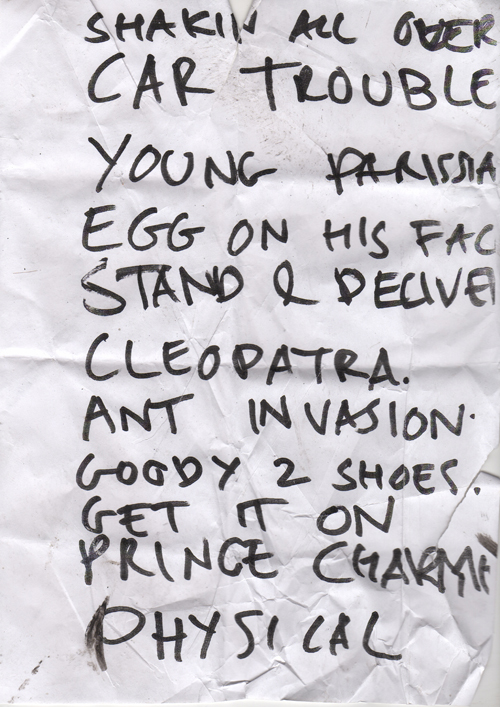 SHAKIN ALL OVER
CAR TROUBLE
YOUNG PARISIA
EGG ON HIS FAC
STAND & DELIVE
CLEOPATRA.
ANT INVASION.
GOODY 2 SHOES.
GET IT ON
PRINCE CHARMI
PHYSICAL